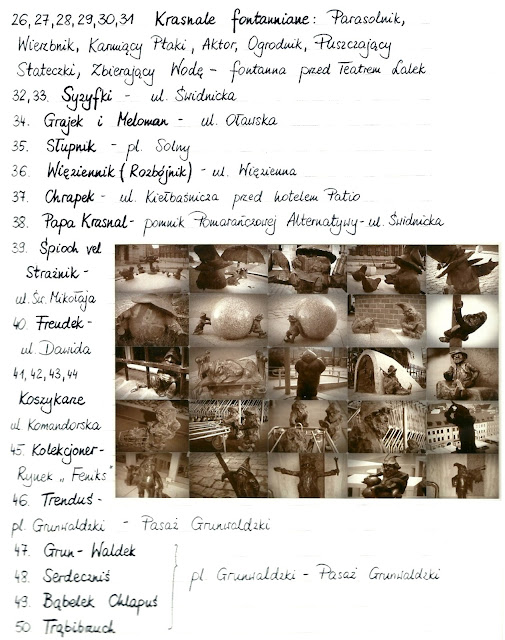 26,27,28,29,30,31 Krasnale fontanniane: Parasolnik,
Wierzbnik, Karmiący Ptaki, Aktor, Ogrodnik, Puszczający
Stateczki, Zbierający Wodę - fontanna przed Teatrem Lalek
32,33. Syzyfki - ul. Świdnicka
34. Grajek i Meloman - ul. Oławska
35. Słupnik - pl. Solny
36. Więziennik (Rozbójnik) - ul. Więzienna
37. Chrapek - ul. Kiełbaśnicza przed hotelem Patio
38. Papa Krasnal - pomnik Pomarańczowej Alternatywy - ul. Świdnicka
39. Śpioch vel
Strażnik -
ul. Św. Mikołaja
40. Freudek -
ul. Dawida
41,42,43,44
Koszykarze
ul Komandorska
45. Kolekcjoner -
Rynek „Feniks"
46. Trenduś -
pl. Grunwaldzki - Pasaż Grunwaldzki
47. Grun-Waldek
48. Serdeczniś
pl. Grunwaldzki - Pasaż Grunwaldzki
49. Bąbelek Chlapuś
50 Trąbibzuch